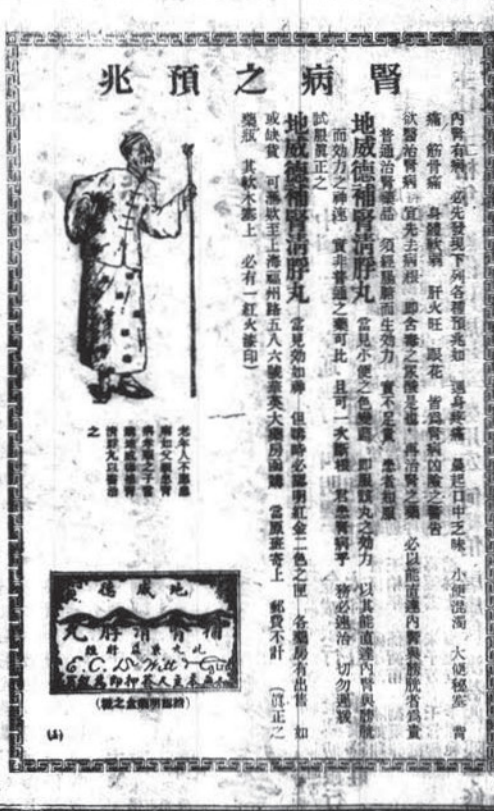 腎病之預兆
內腎有病 必先發現下列各種預兆如 週身疼痛 晨起口中乏味 小便混濁 大便秘塞 背
痛 筋骨痛 身體軟弱 肝火旺 眼花 皆為腎病凶險之警告
欲醫治腎病 宜先去病根 即含毒之尿酸是也 再治腎之藥 必以能直達內腎與膀胱者為貴
普通治腎藥品 須經腸腑而生効力 實不足貴 患者祖服
地威德補腎清脬丸 當見小便之色變藍 即服該丸之効力 以其能直達內腎與膀胱
而効力之神速 實非普通之藥可比 且可一次斷根 君患腎病乎 務必速治 切勿遲緩
試服真正之
地威德補腎清脬丸 當見効如神 但購時必認明紅金二色之匣 各藥房有出售 如
或缺貨 可滙欵至上海福州路五八六號華英大藥房函購 當原班寄上 郵費不計 (真正之
藥瓶 其軟木塞上 必有一紅火漆印)
老年人不應患
之
地威德
補腎清脬丸
E. C. De Witt & Co
(上)